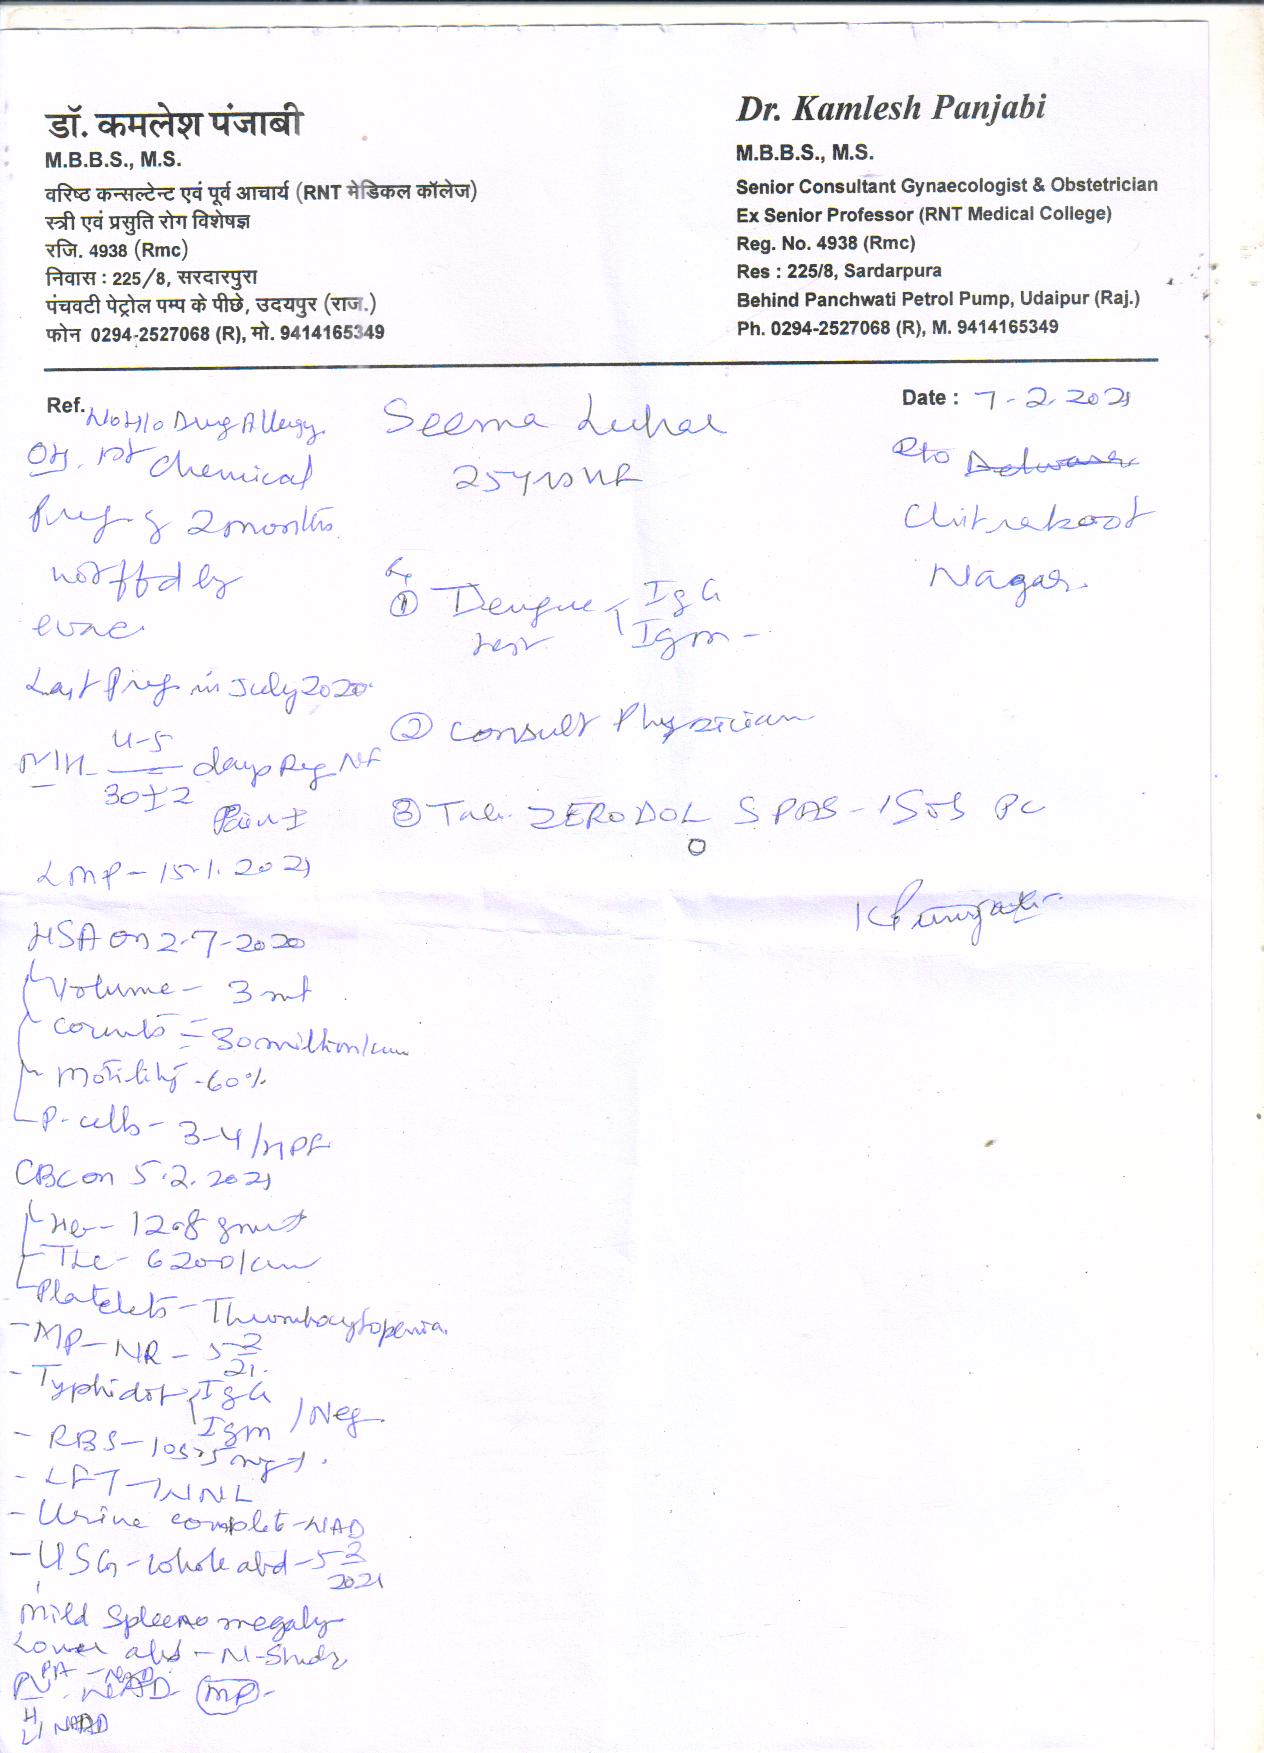 डॉ. कमलेश पंजाबी
M.B.B.S., M.S.
वरिष्ठ कन्सल्टेन्ट एवं पूर्व आचार्य (RNT मेडिकल कॉलेज)
स्त्री एवं प्रसुति रोग विशेषज्ञ
रजि. 4938 (Rmc)
निवास : 225/8, सरदारपुरा
पंचवटी पेट्रोल पम्प के पीछे, उदयपुर (राज.)
फोन 0294-2527068 (R), मो. 9414165349
Dr. Kamlesh Panjabi
M.B.B.S., M.S.
Senior Consultant Gynaecologist & Obstetrician
Ex Senior Professor (RNT Medical College)
Reg. No. 4938 (Rmc)
Res : 225/8, Sardarpura
Behind Panchwati Petrol Pump, Udaipur (Raj.)
Ph. 0294-2527068 (R), M. 9414165349
Ref.
No H/o Drug Allergy
OH. 1st Chemical
Preg 2 months
not ffd by
evac
Last Preg in July 2020
M/H - 4-5 / 30±2 days Reg NF
Pain ±
LMP - 15.1.2021
HSA on 2-7-2020
Volume - 3 ml
Counts = 30 million/cum
Motility - 60%
P-cells - 3-4/HPF
CBC on 5.2.2021
Hb - 12.8 gm
TLC - 6200/cum
Platelets - Thrombocytopenia
- MP - NR - 5 2/21
- Typhidot IgG
IgM / Neg
- RBS - 105.75 mg
- LFT - WNL
- Urine complet - NAD
- USG - whole abd - 5 2/2021
Mild Spleenomegaly
Lower abd - N-Study
PA - NAD
PV - NAD MP -
H
L NAD
Seema Luhar
25 yrs
Date : 7-2-2021
R/o
Chitrakoot
Nagar
① Dengue IgG
test IgM -
② Consult Physician
③ Tab. ZERODOL SPAS - 1 SOS PC